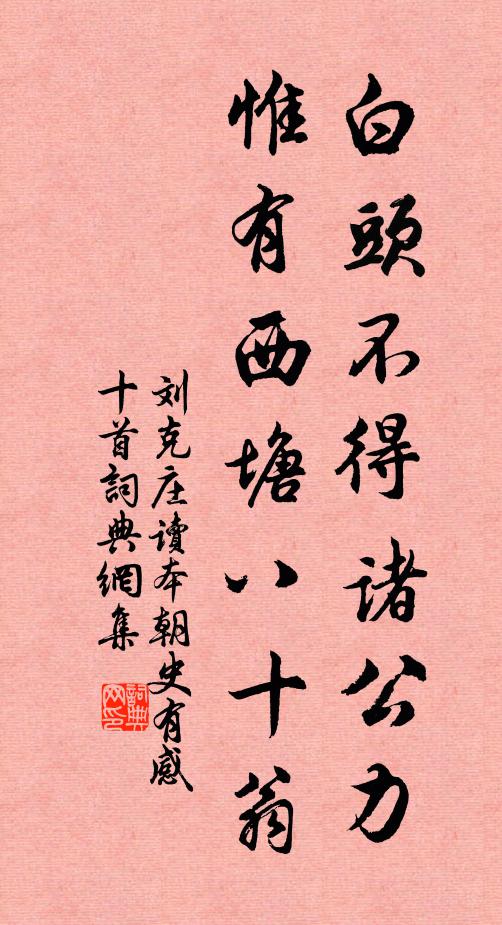 白頭不得諸公力
惟有西塘八十翁
刘克庄讀本朝史有感
十首詞典網集
詞典
网印